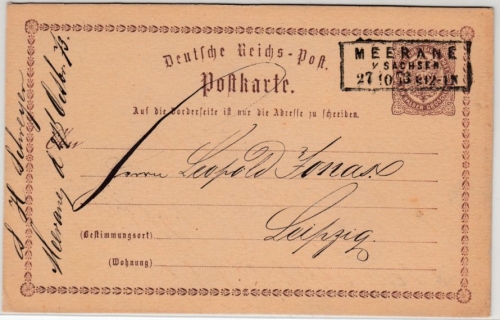 Deutsche Reichs-Post.
Postkarte.
Auf die Vorderseite ist nur die Adresse zu schreiben.
MEERANE
I/SACHSEN
27 10 73
An
Herrn Leopold Jonas
(Bestimmungsort)
Leipzig.
(Wohnung)
Meerane d